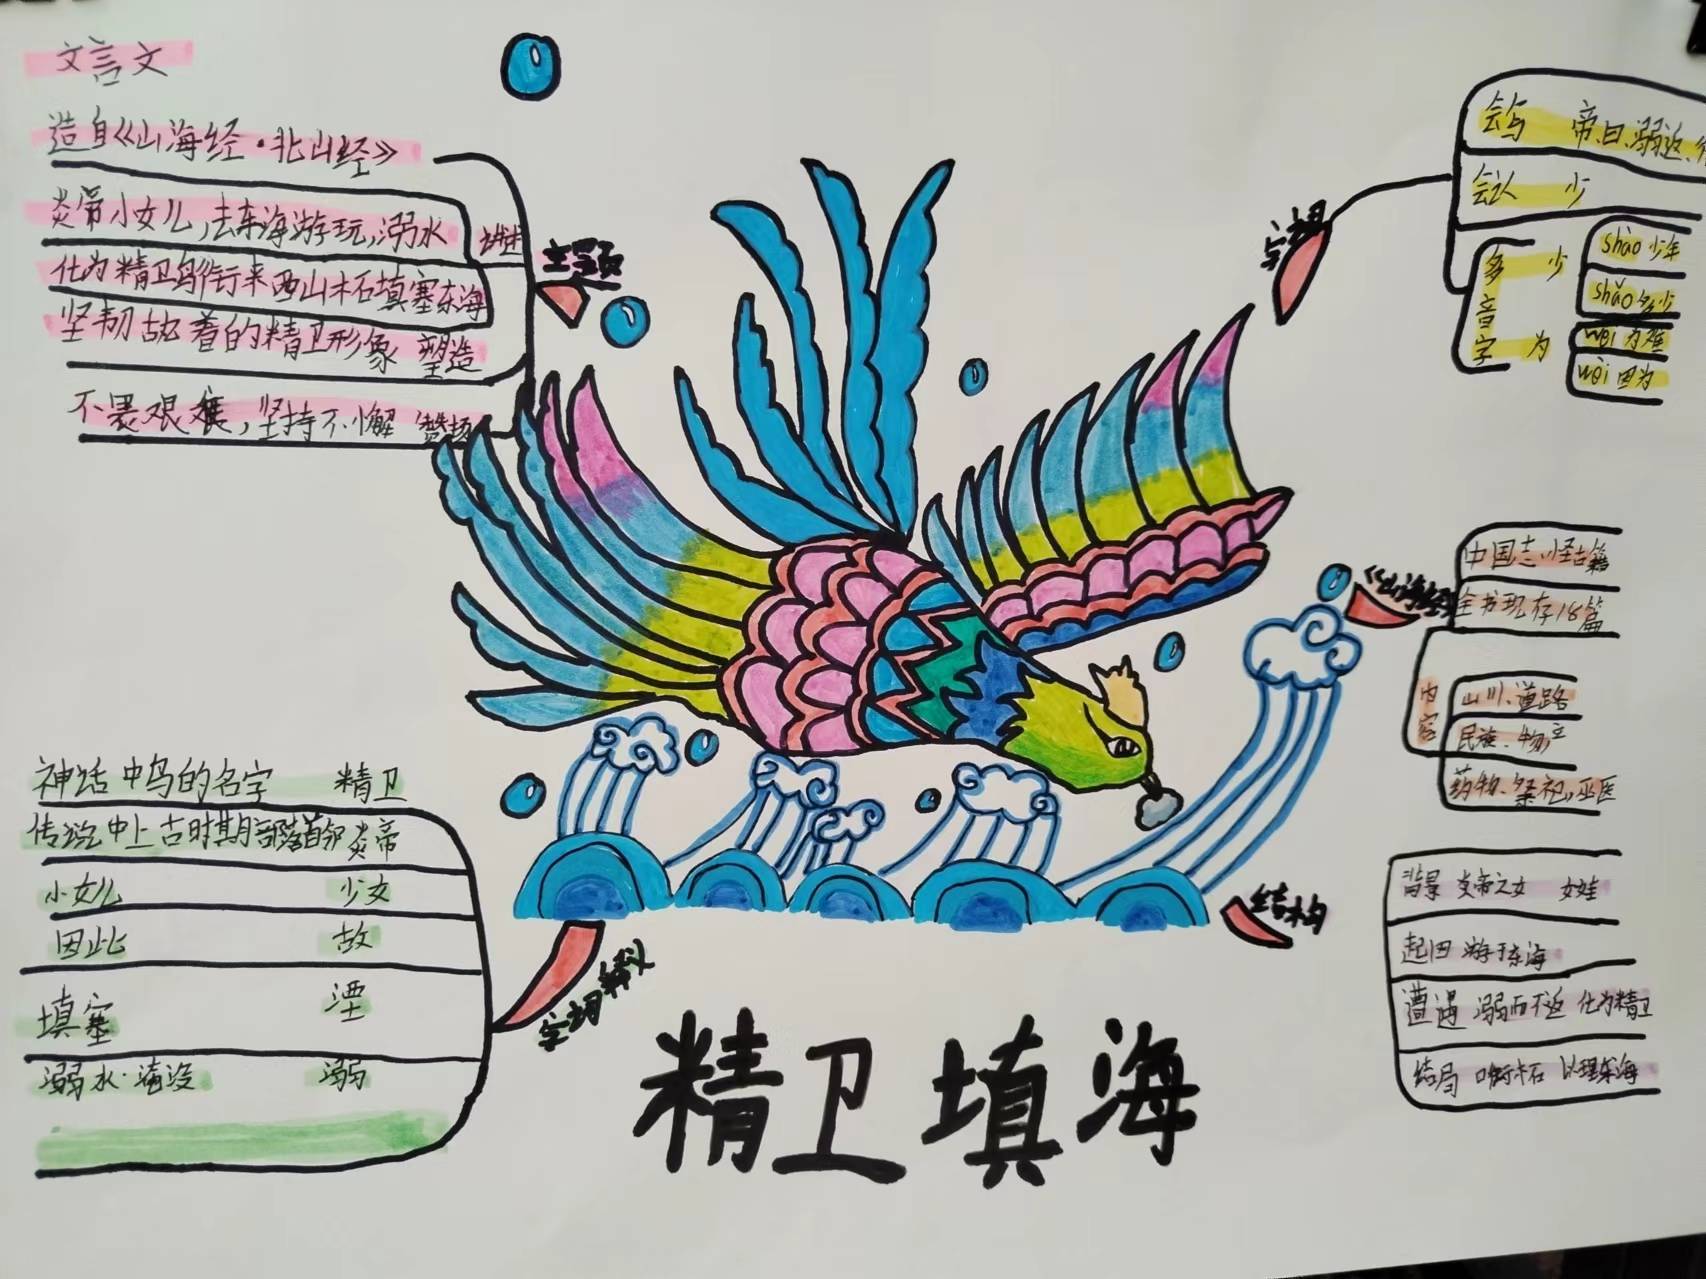 文言文
造自《山海经·北山经》
炎帝小女儿,去东海游玩,溺水
讲述
主题
化为精卫鸟衔来西山木石填塞东海
坚韧执着的精卫形象 塑造
不畏艰难,坚持不懈 赞扬
字词
会写 帝、曰、溺、返、
会认 少
多音字
少
shào 少年
shǎo 多少
为
wéi 为难
wèi 因为
《山海经》
中国志怪古籍
全书现存18篇
内容
山川、道路
民族、物产
药物、祭祀、巫医
神话中鸟的名字 精卫
传说中上古时期部落首领 炎帝
小女儿 少女
因此 故
填塞 湮
溺水·淹没 溺
字词释义
结构
背景 炎帝之女 女娃
起因 游于东海
遭遇 溺而不返 化为精卫
结局 衔木石 以堙东海
精卫填海